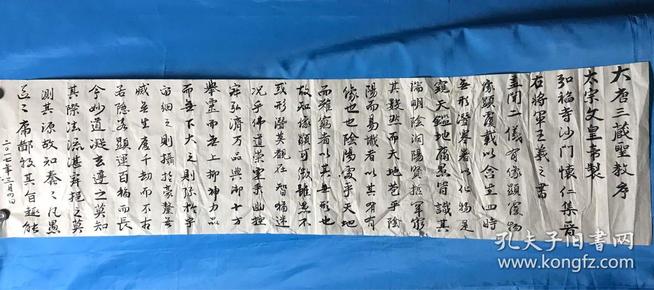 大唐三藏聖教序
太宗文皇帝製
弘福寺沙門懷仁集晋
右將軍王羲之書
盖聞二儀有像顯覆
載以含生四時
無形潛寒暑以化物是
窺天鑑地庸愚皆識其
端明陰洞陽賢哲罕窮
其數然而天地苞乎陰
陽而易識者以其有
像也陰陽處乎天地
而難窮者以其無形也
故知像顯可徵雖愚不
或形潛莫覩在智猶迷
況乎佛道崇虛乘幽控
寂弘濟万品典御十方
舉威靈而無上抑神力
而無下大之則弥於宇
宙細之則攝於豪釐無
滅無生度千劫而不古
若隱若顯運百福而長
今妙道凝玄遵之莫知
其際法流湛寂挹之莫
測其源故知蠢蠢凡愚
區區庸鄙投其旨趣能
二〇一七年三月
孔夫子旧书网
www.kongfz.com